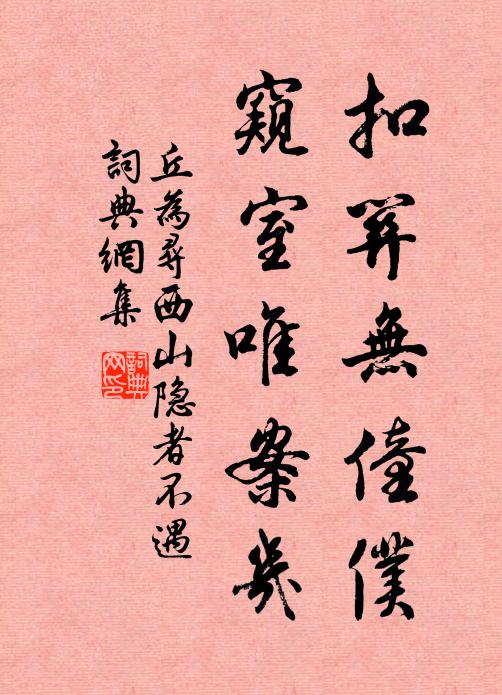 扣關無僮僕
窺室唯案幾
丘為尋西山隐者不遇
詞典網集
詞典网印